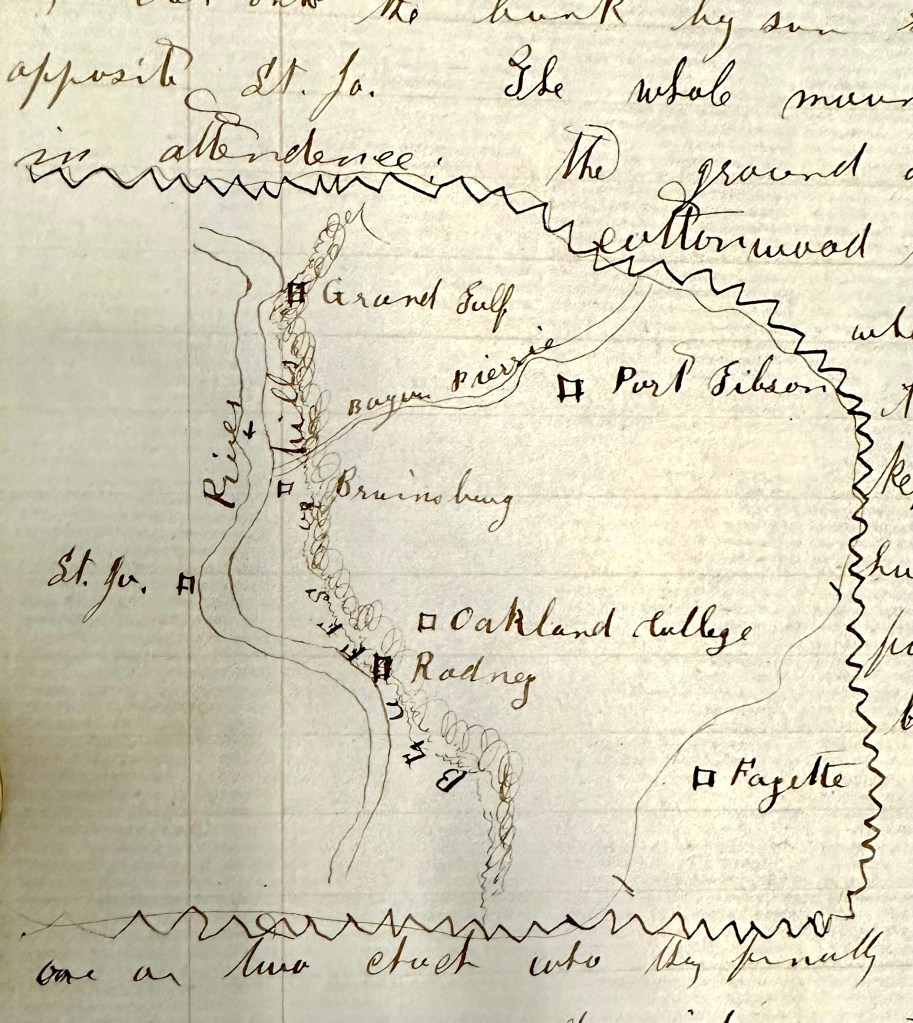 the bank by sun
opposite St. Jo. The whole
in attendence. The ground
cottonwood
Grand Gulf
Bayou Pierrie
Port Gibson
hills
River
Bruinsburg
St. Jo.
Oakland College
Rodney
BLUFFS
Fayette
one or two
who they finally